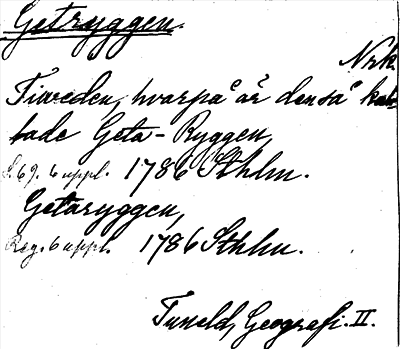 Getryggen.
Nrk.
Tiweden, hvarpå är den så kal-
lade Geta-Ryggen,
S. 69. 6 uppl. 1786 Sthlm.
Getaryggen,
Reg. 6 uppl. 1786 Sthlm.
Tuneld, Geografi. II.